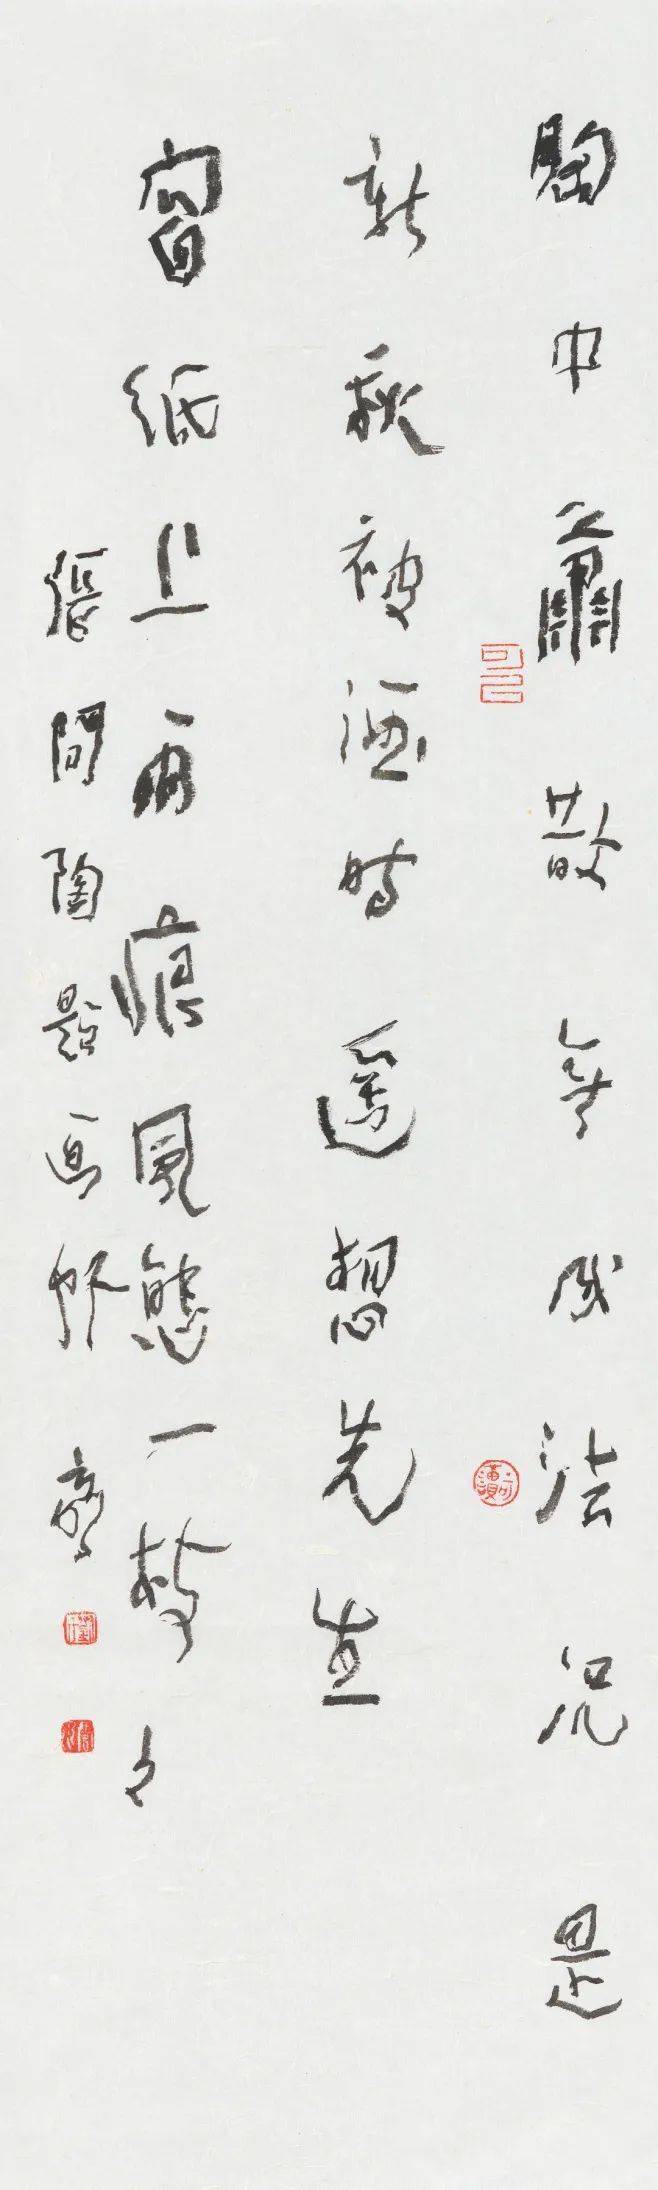 胸中蕭散無成法況是
新秋被酒時遙想先生
窗紙上雨痕風態一枝々
張問陶題画竹